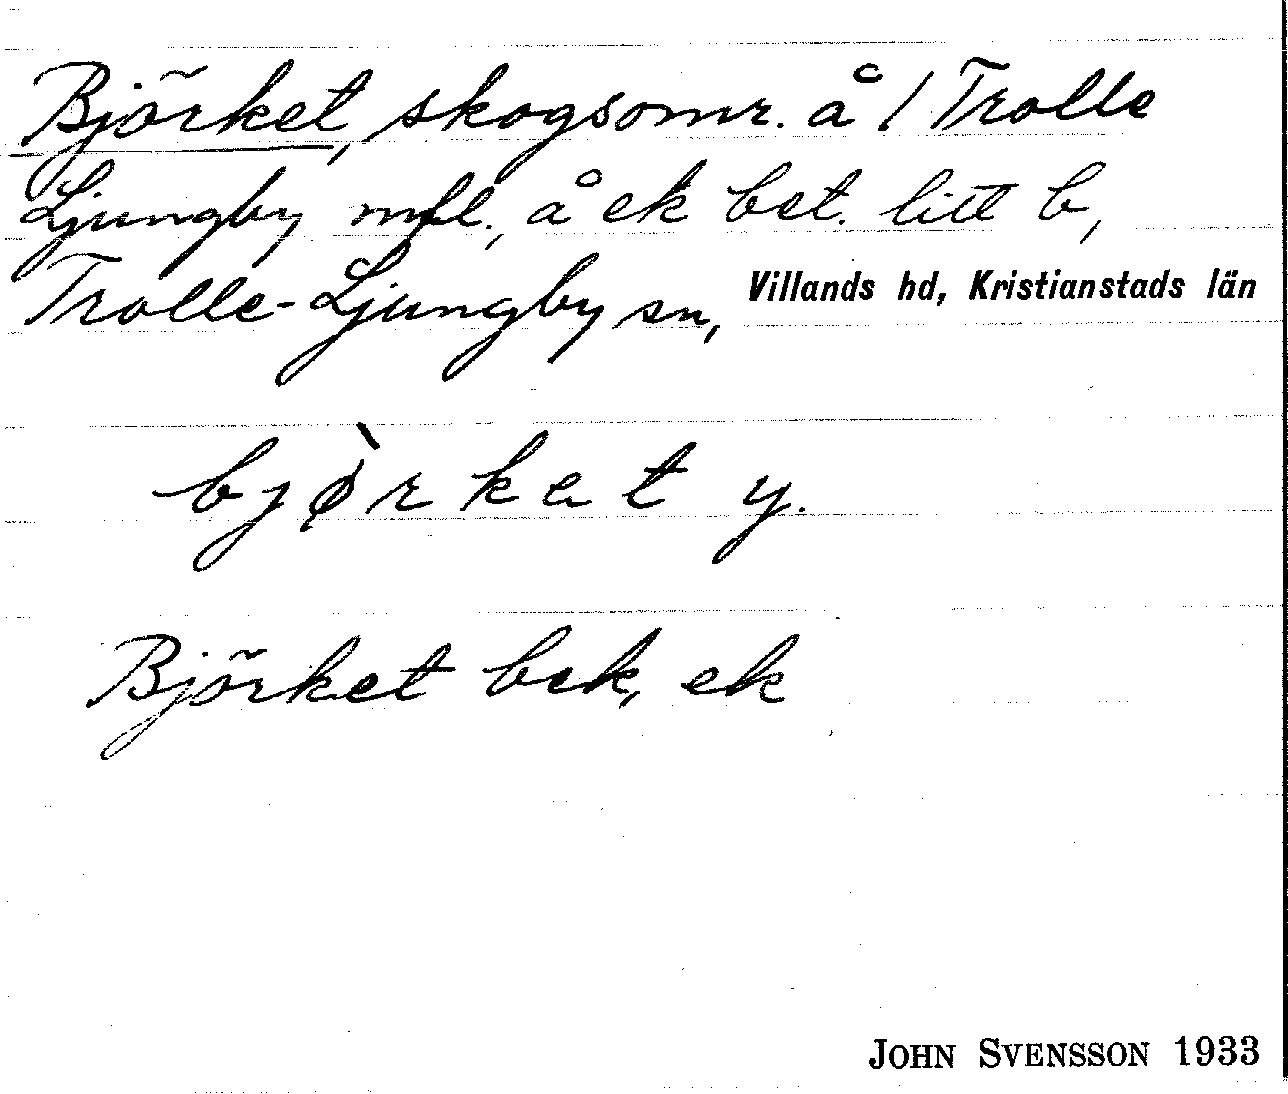 Björket, skogsomr. å 1 Trolle
Ljungby mfl., å ek bet. litt b,
Trolle-Ljungby sn, Villands hd, Kristianstads län
bjø̀rket y.
Björket bek, ek
JOHN SVENSSON 1933